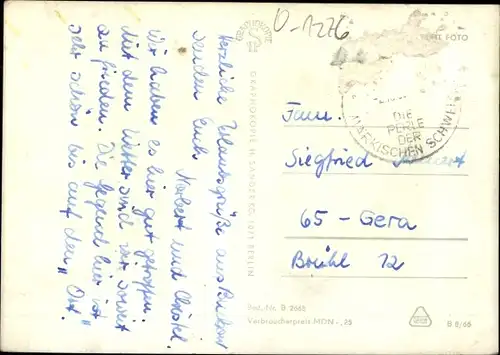 O-1276
ECHT FOTO
DIE
PERLE
DER
MÄRKISCHEN SCHWEIZ
Herzliche Urlaubsgrüße aus Buckow
senden Euch
Norbert und Christel.
Wir haben es hier gut getroffen.
Mit dem Wetter sind wir soweit
zufrieden. Die Gegend hier ist
sehr schön bis auf den „Ort".
GRAPHOKOPIE H. SANDER KG, 1071 BERLIN
Fam.
Siegfried
65 - Gera
Brühl 12
Best.-Nr. D 2685
Verbraucherpreis MDN -,25
B 8/66